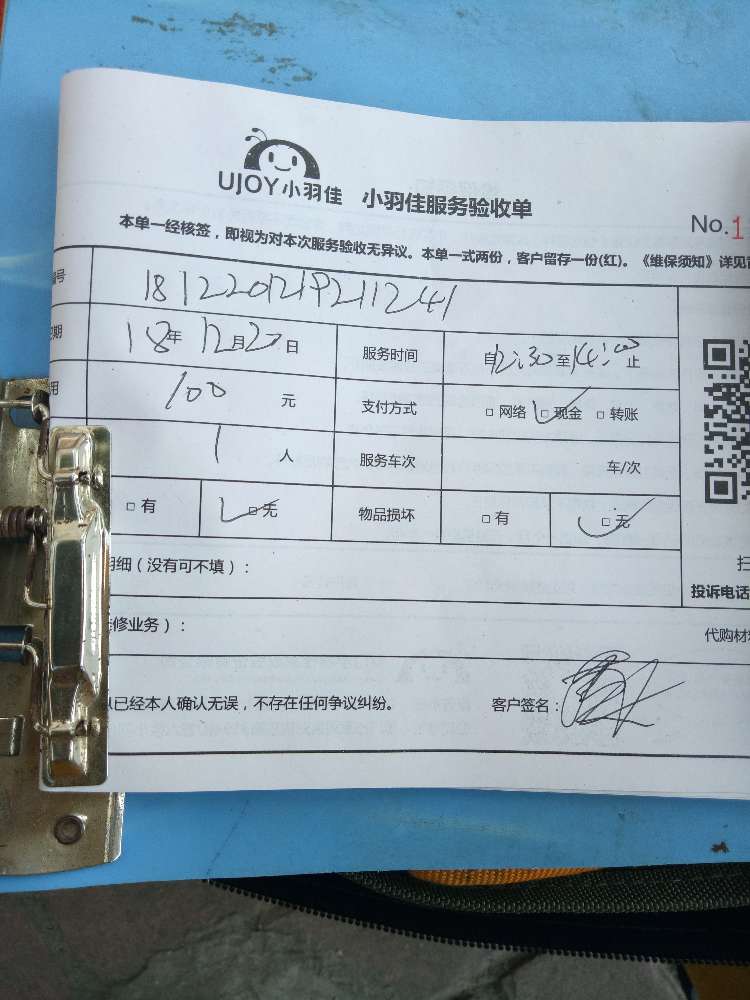 UJOY小羽佳 小羽佳服务验收单
No.1
本单一经核签，即视为对本次服务验收无异议。本单一式两份，客户留存一份(红)。《维保须知》详见背
号 181220121921241
期 18年12月20日 服务时间 自12:30至14:00止
用 100 元 支付方式 □网络 □现金 □转账
1 人 服务车次 车/次
□有 □无 物品损坏 □有 □无
明细（没有可不填）：
扫
投诉电话
修业务）：
代购材
已经本人确认无误，不存在任何争议纠纷。 客户签名：